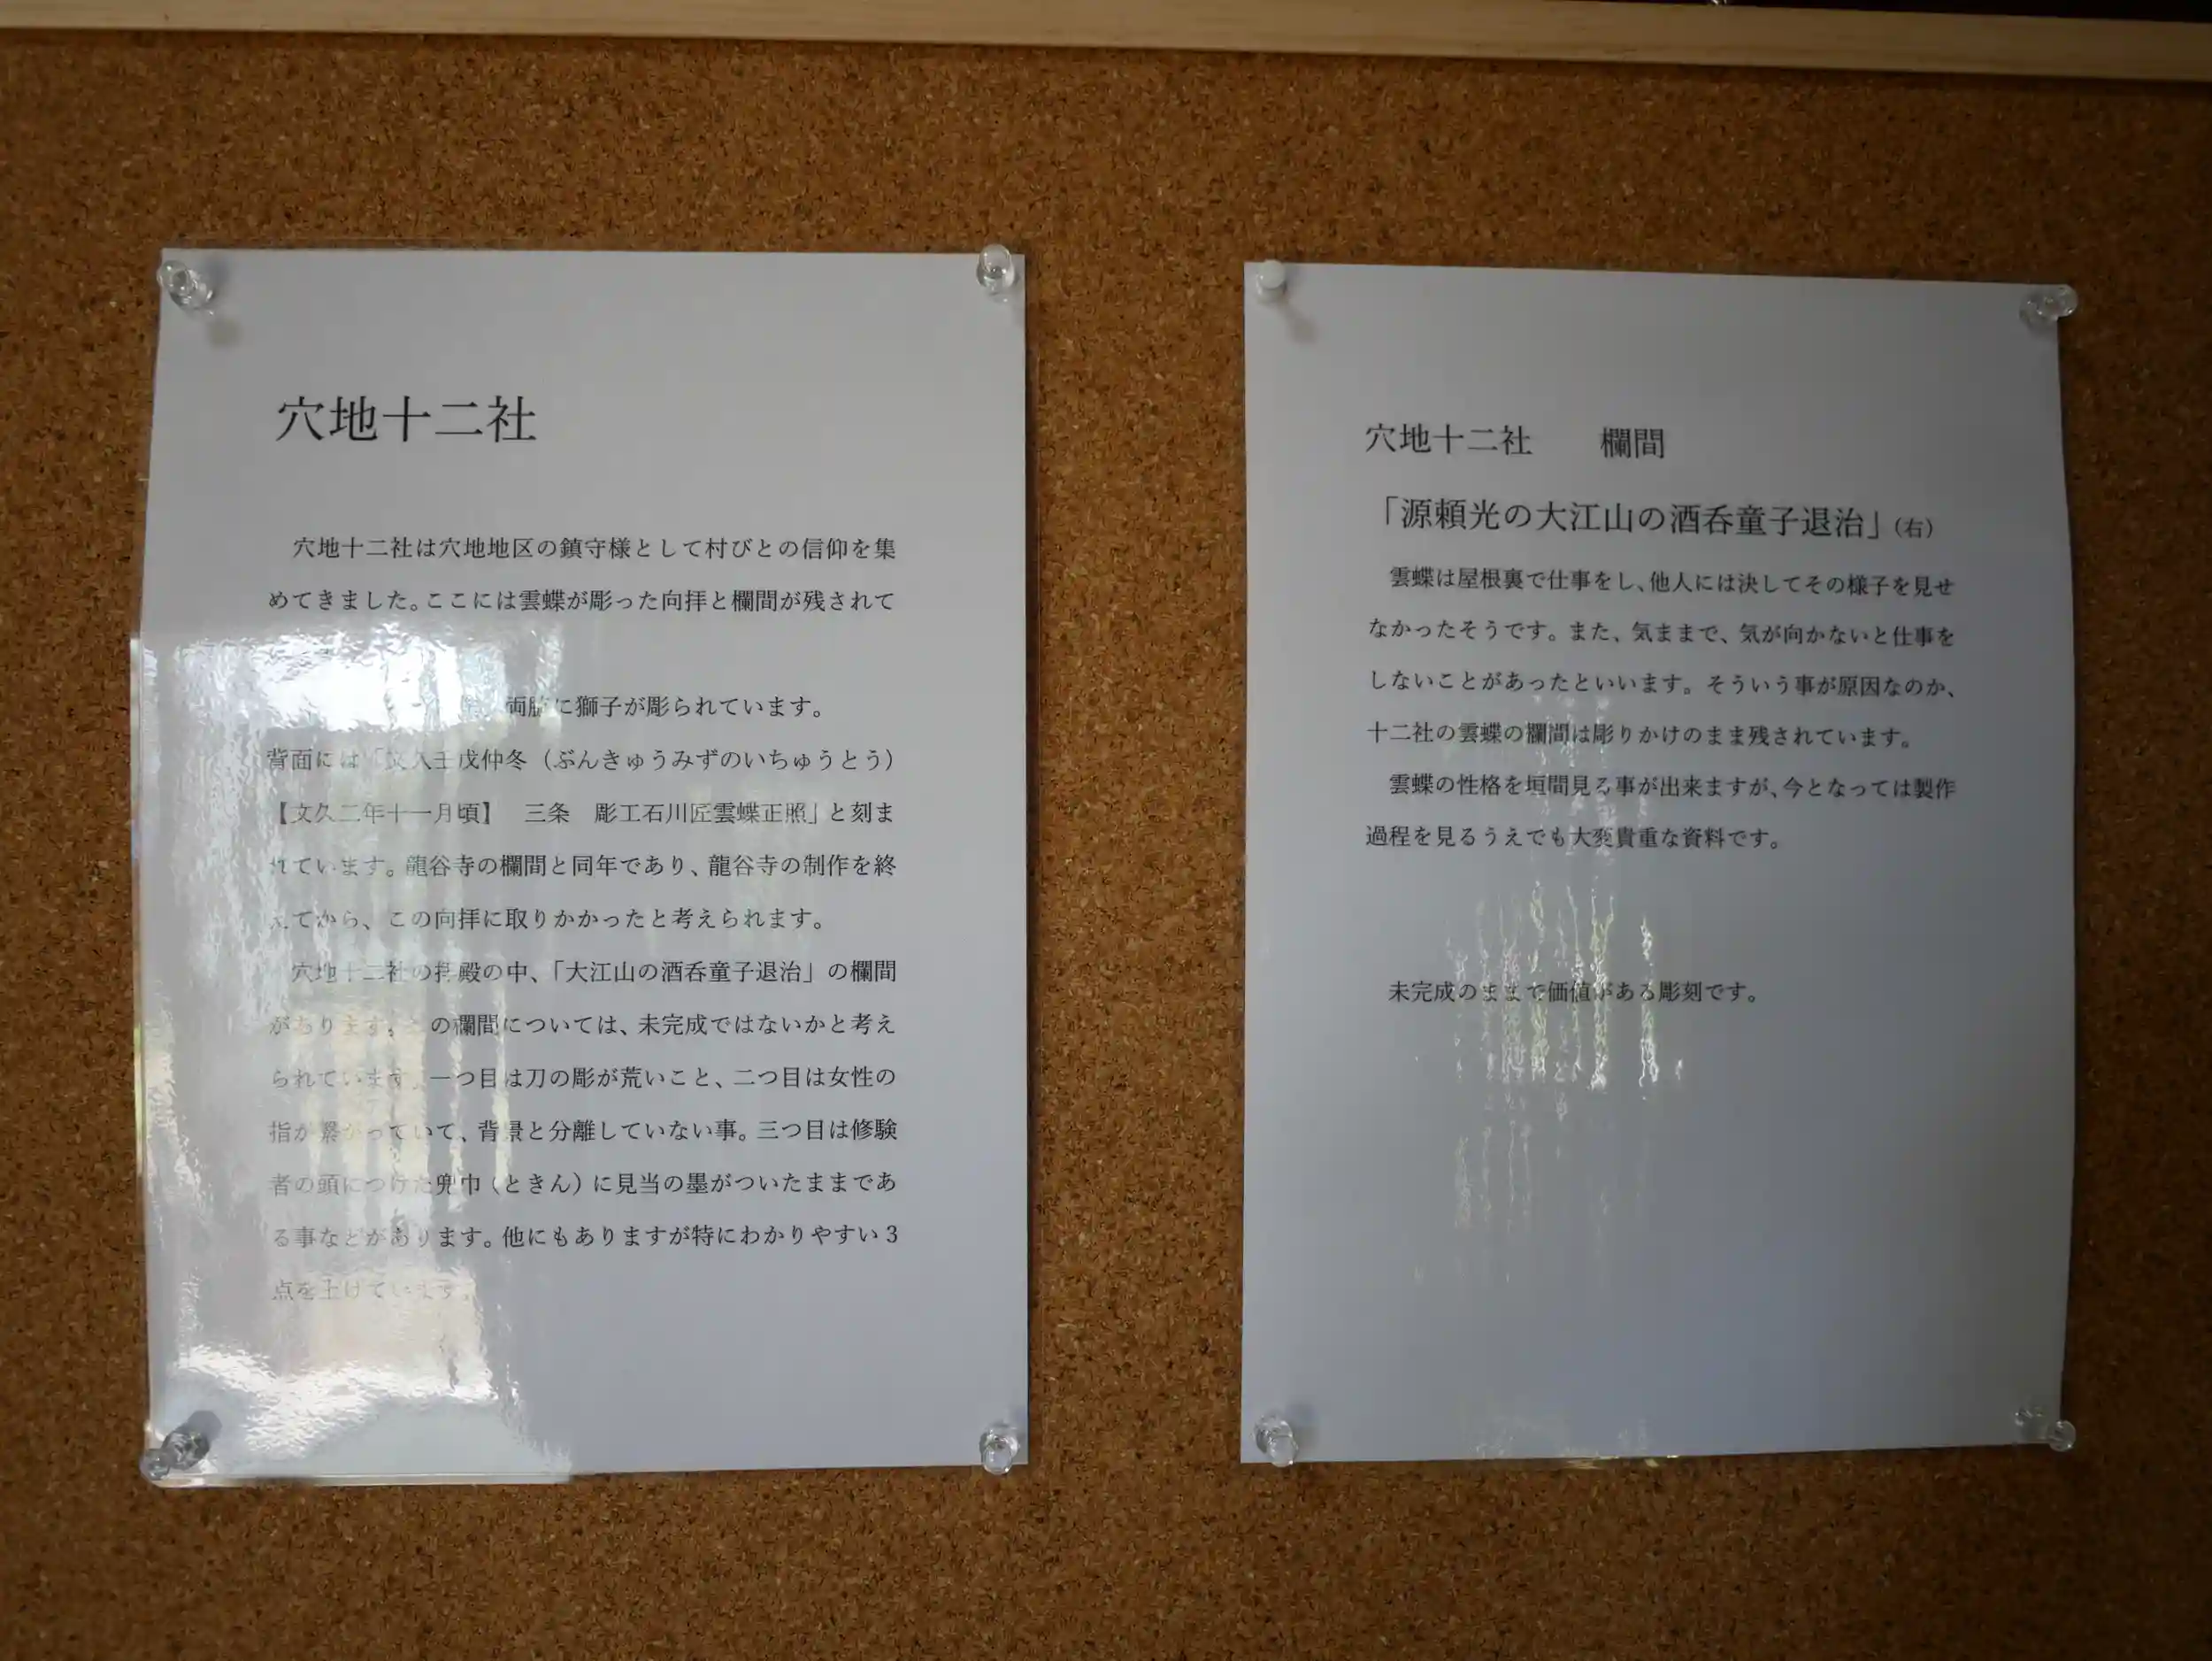 穴地十二社
穴地十二社は穴地地区の鎮守様として村びとの信仰を集
めてきました。ここには雲蝶が彫った向拝と欄間が残されて
両脇に獅子が彫られています。
背面には「文久壬戌仲冬（ぶんきゅうみずのいちゅうとう）
【文久二年十一月頃】　三条　彫工石川匠雲蝶正照」と刻ま
れています。龍谷寺の欄間と同年であり、龍谷寺の制作を終
えてから、この向拝に取りかかったと考えられます。
穴地十二社の拝殿の中、「大江山の酒呑童子退治」の欄間
があります。この欄間については、未完成ではないかと考え
られています。一つ目は刀の彫が荒いこと、二つ目は女性の
指が繋がっていて、背景と分離していない事。三つ目は修験
者の頭につけた兜巾（ときん）に見当の墨がついたままであ
る事などがあります。他にもありますが特にわかりやすい3
点を上げています。
穴地十二社　　欄間
「源頼光の大江山の酒呑童子退治」（右）
雲蝶は屋根裏で仕事をし、他人には決してその様子を見せ
なかったそうです。また、気ままで、気が向かないと仕事を
しないことがあったといいます。そういう事が原因なのか、
十二社の雲蝶の欄間は彫りかけのまま残されています。
雲蝶の性格を垣間見る事が出来ますが、今となっては製作
過程を見るうえでも大変貴重な資料です。
未完成のままで価値がある彫刻です。